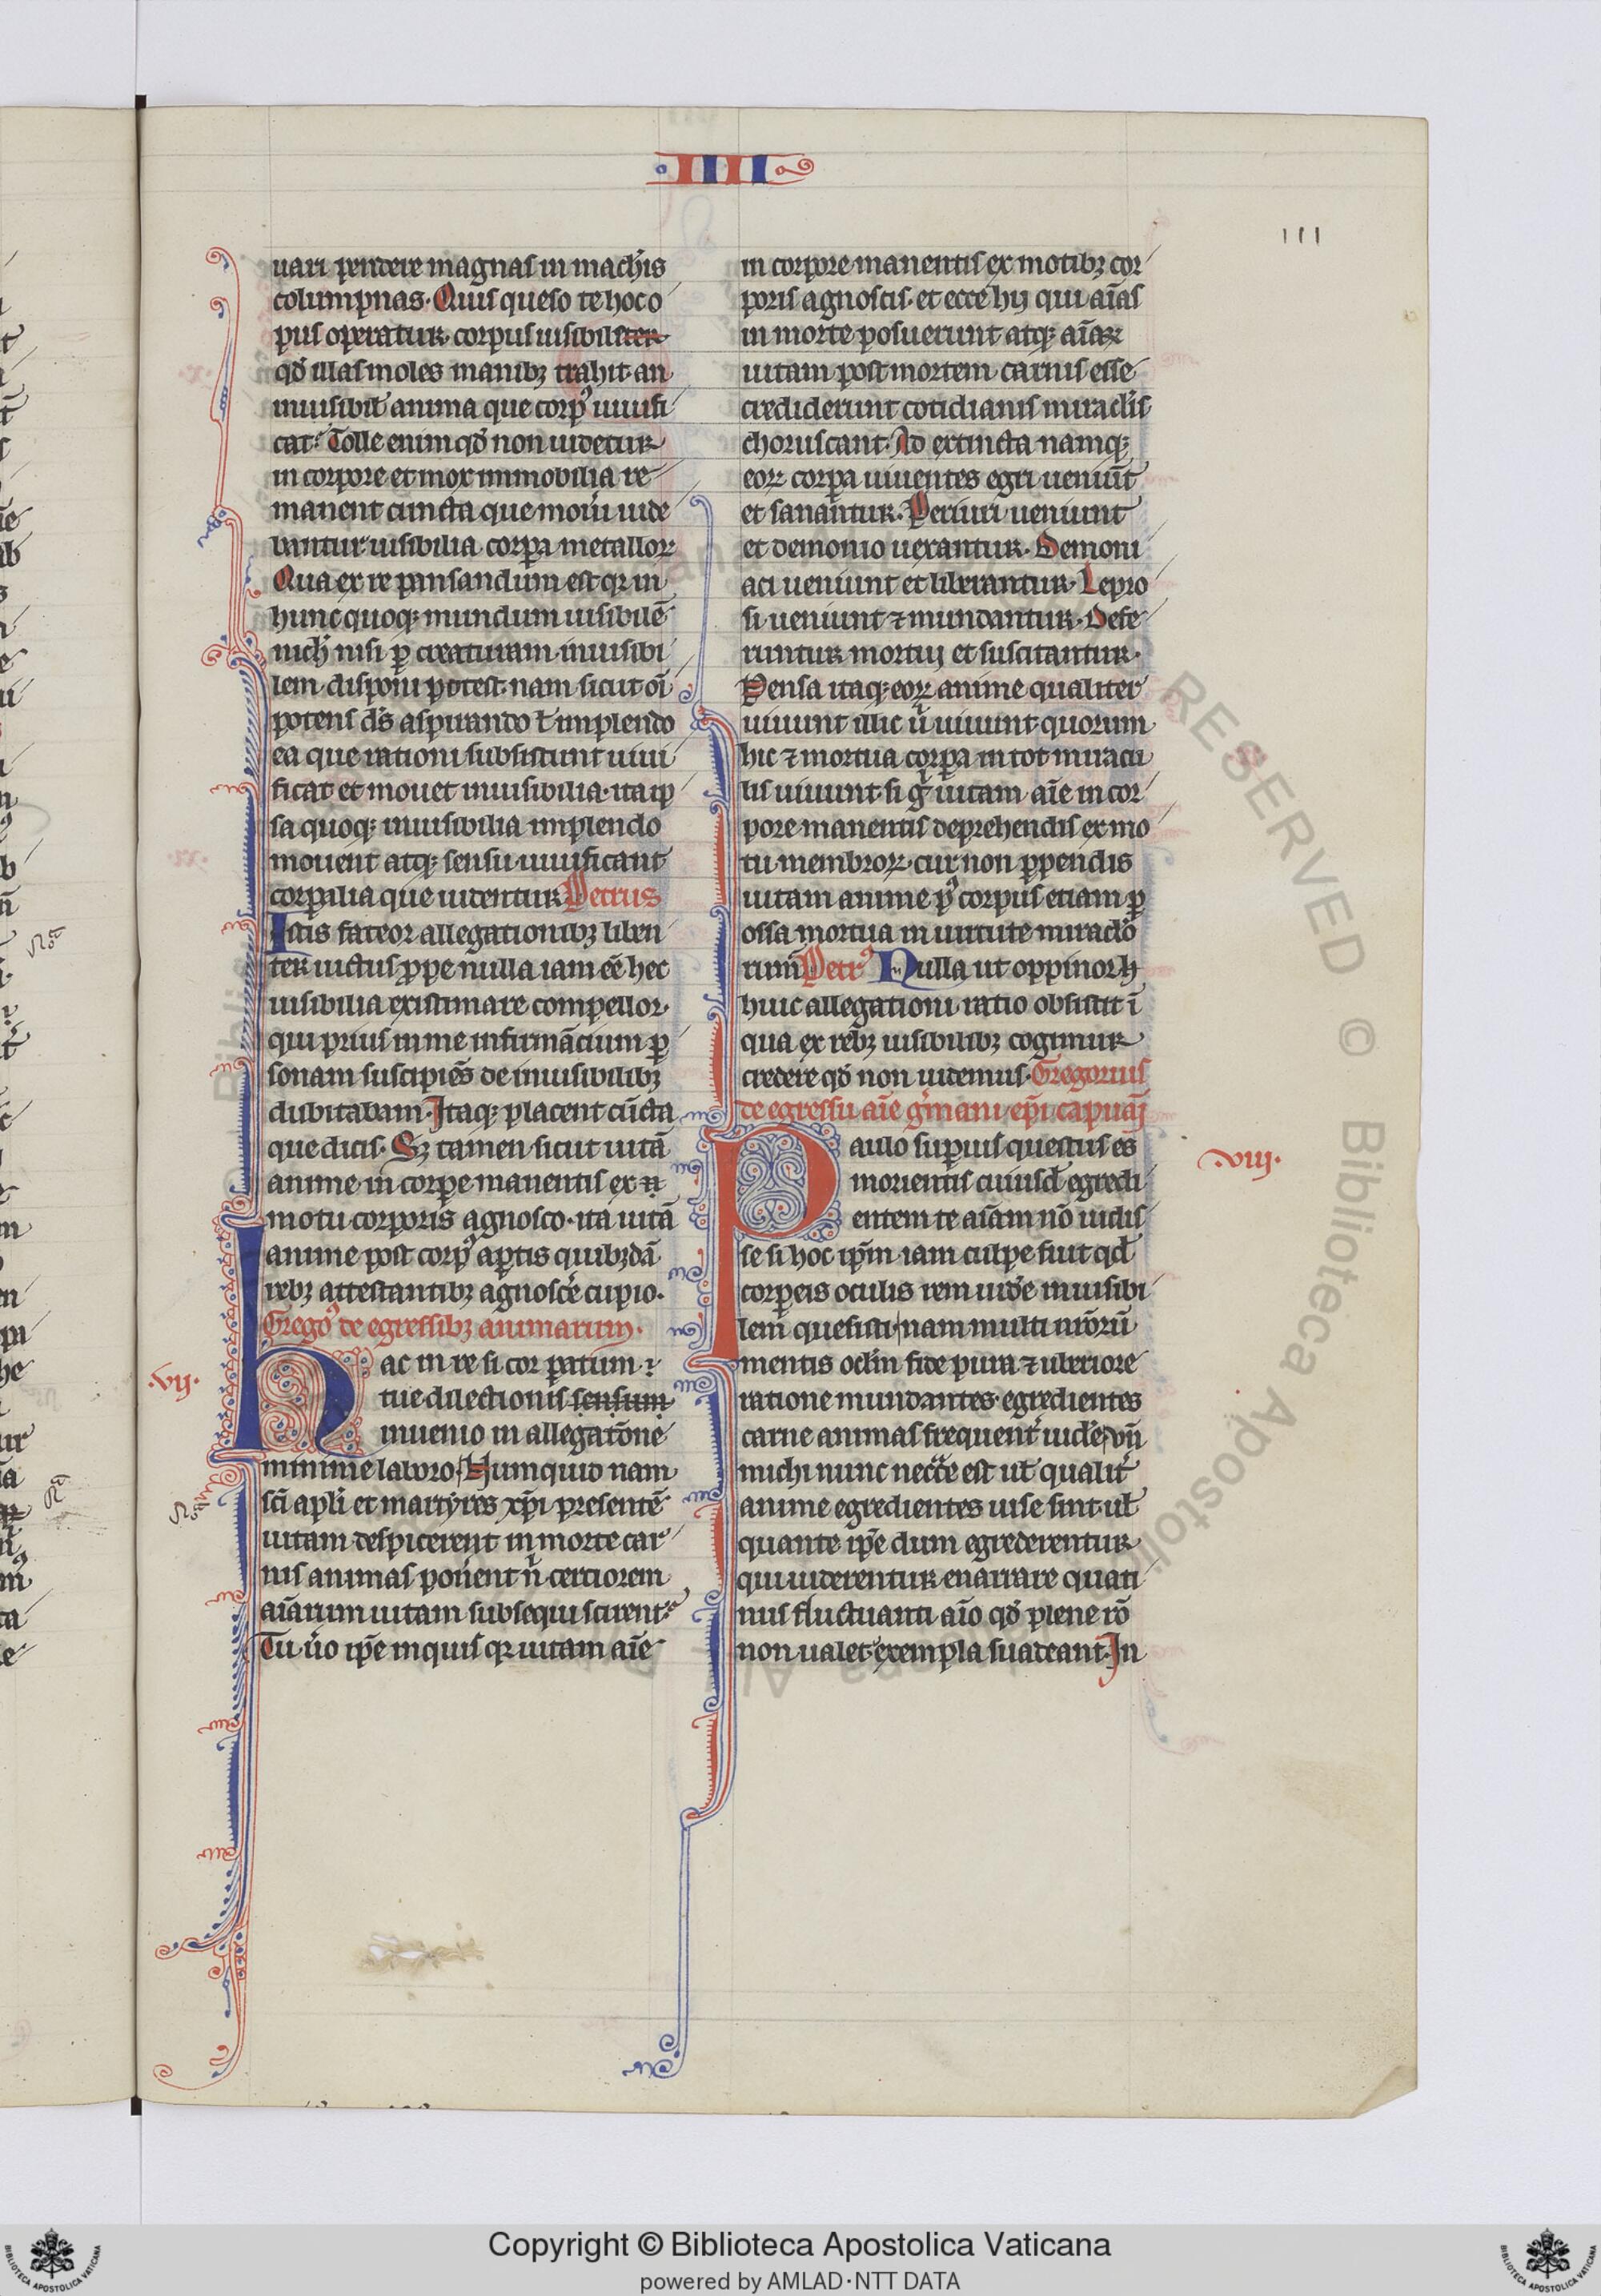 IIII
111
uari pendere magnas in mach̉is
columpnas. Quis queso te hoc o
pus operatur. corpus uisibile
qd̓ illas moles manibꝫ trahit an
inuisibil̓ anima que corpꝰ uiuifi
cat? Tolle enim qd̓ non uidetur
in corpore et mox immobilia re
manent cuncta que mou̓i uide
bantur uisibilia corꝑa metalloꝝ
Qua ex re pensandum est qꝛ in
hunc quoqꝫ mundum uisibilē
nich̓ nisi ꝑ creaturam inuisibi
lem disponi potest. nam sicut oī
potens ds̄ aspirando ł implendo
ea que rationi subsistunt uiui
ficat et mouet inuisibilia. ita ip̄
sa quoqꝫ inuisibilia implendo
mouent atqꝫ sensu uiuificant
corꝑalia que uidentur Petrus
Istis fateor allegationibꝫ liben
ter uictus ꝓpe nulla iam eē hec
uisibilia existimare compellor.
qui prius in me infirmācium ꝑ
sonam suscipiēs de inuisibilibꝫ
dubitabam. Itaqꝫ placent cūcta
que dicis. Sꝫ tamen sicut uitā
anime in corꝑe manentis ex
motu corporis agnosco. ita uitā
anime post corpꝰ aꝑtis quibꝫdā
rebꝫ attestantibꝫ agnosce̓ cupio.
Gregoꝰ de egressibꝫ animarum.
.vij.
Hac in re si cor patum
tue dilectionis sensum
inuenio in allegatōne
minime laboro. Numquid nam
sc̄i apl̓i et martyres xp̄i presentē
uitam despicerent in morte car
nis animas pone̓nt n̓ certiorem
aīarum uitam subsequi scirent?
Tu u̓o ip̄e inquis qꝛ uitam aīe
in corpore manentis ex motibꝫ cor
poris agnoscis. et ecce hij qui aīas
in morte posuerunt atqꝫ aīaꝝ
uitam post mortem carnis esse
crediderunt cotidianis miracl̓is
choruscant. Ad extincta namqꝫ
eoꝝ corꝑa uiuentes egri ueniūt
et sanantur. Periuri ueniunt
et demonio uexantur. Demoni
aci ueniunt et liberantur. Lepro
si ueniunt ⁊ mundantur. Defe
runtur mortui et suscitantur.
Pensa itaqꝫ eoꝝ anime qualiter
uiuunt illic u̓ uiuunt quorum
hic ⁊ mortua corꝑa in tot miracu
lis uiuunt. si gͦ uitam aīe in cor
pore manentis deprehendis ex mo
tu membroꝝ. cur non ꝑpendis
uitam anime pꝰ corpus etiam ꝑ
ossa mortua in uirtute miraclo̓
rum Petrꝰ Nulla ut oppinor h̓
huic allegationi ratio obsistit ī
qua ex rebꝫ uisibilibꝫ cogimur
credere qd̓ non uidemus. Gregorius
de egressu aīe g̓mani ep̄i capuaj
.viij.
Paulo suꝑius questus es
morientis cuiusd̓ egredi
entem te aīam nō uidis
se si hoc ip̄m iam culpe fiut qd̓
corꝑeis oculis rem uide̓ inuisibi
lem quesisti nam multi nr̄orū
mentis ocl̓m fide pura ⁊ uberiore
ratione mundantes. egredientes
carne animas frequent̓ uide̓. vn̄
michi nunc necc̄e est uł qualit̓
anime egredientes uise sint. uł
quante ip̄e dum egrederentur
qui uiderentur enarrare quati
nus fluctuanti aīo qd̓ plene rō
non ualet exempla suadeant. In